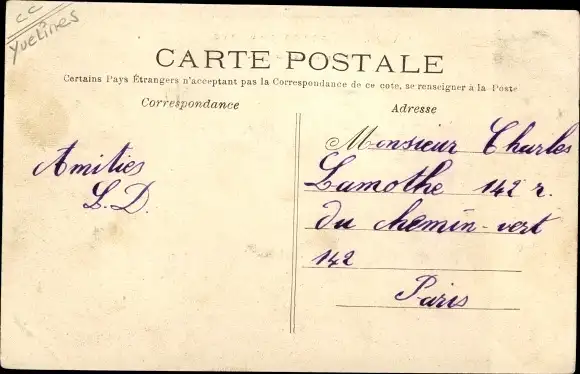 cc
Yvelines
CARTE POSTALE
Certains Pays Étrangers n'acceptant pas la Correspondance de ce coté, se renseigner à la Poste
Correspondance
Adresse
Amitiés
L. D.
Monsieur Charles
Lamothe 142 r.
du chemin-vert
142
Paris